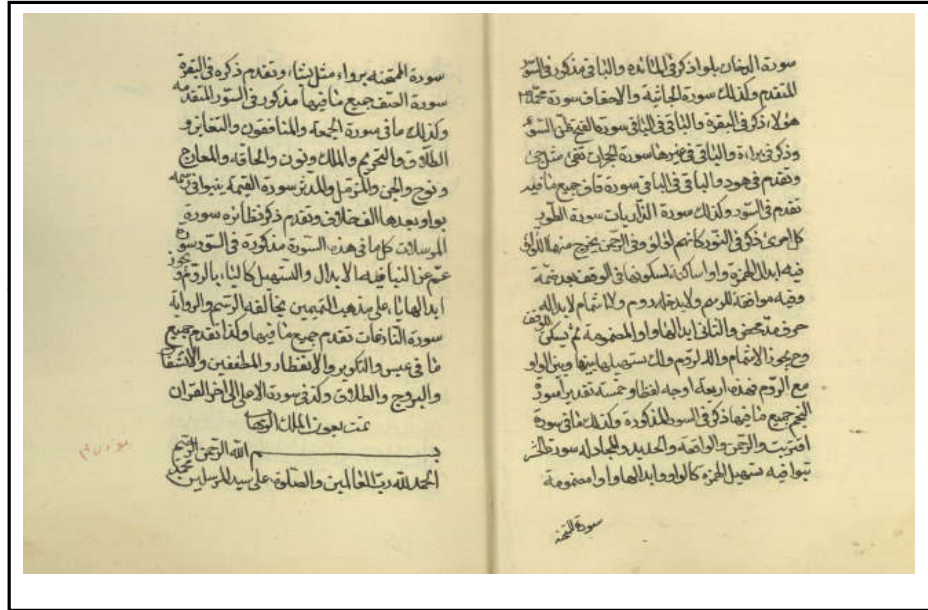 سورة الدخان بلوا ذكر في المائدة والباقي مذكور في السور
المتقدم وكذلك سورة الجاثية والاحقاف سورة محمد
هؤلاء ذكر في البقرة والباقي في الباقي سورة الفتح السوء
وذكر في براءة والباقي في غيرها سورة الحجرات تفئ مثل جئ
وتقدم في هود والباقي في الباقي سورة قاف جميع ما فيه
تقدم في السور وكذلك سورة الذاريات سورة الطور
كل امرئ ذكر في النور كانهم لؤلؤ وفي الرحمن يخرج منهما اللؤلؤ
فيه ابدال الهمزة واوا ساكنة لسكونها في الوقف بعد ضمة
وفيه موافقة للرسم ولا يدخله روم ولا اشمام لابداله
حرف مد محض والثاني ابدالها واوا مضمومة ثم يسكن للوقف
وح يجوز الاشمام والروم ولك تسهيلها بينها وبين الواو
مع الروم فهذه اربعة اوجه لفظا وخمسة تقديرا سورة
النجم جميع ما فيها ذكر في السور المذكورة وكذلك ما في سورة
اقتربت والرحمن والواقعة والحديد والمجادلة سورة الحشر
تبوا فيه تسهيل الهمزة كالواو وابدالها واوا مضمومة
سورة الممتحنة
سورة الممتحنه براء مثل يشاء وتقدم ذكره في البقرة
سورة الصف جميع ما فيها مذكور في السور المتقدمه
وكذلك ما في سورة الجمعة والمنافقون والتغابن و
الطلاق والتحريم والملك ونون والحاقة والمعارج
ونوح والجن والمزمل والمدثر سورة القيمة ينبوا في
بواو بعدها الف خلاف وتقدم ذكر نظائره سورة
المرسلات كل ما في هذه السورة مذكورة في السور سورة
عم عن النبا فيه الابدال والتسهيل كالياء بالروم ويجوز
ابدالها ياء على مذهب التميمين يخالفه الرسم والرواية
سورة النازعات تقدم جميع ما فيها وكذا تقدم جميع
ما في عبس والتكوير والانفطار والمطففين والانشقاق
والبروج والطلاق وكذا في سورة الاعلى الى اخر القران
تمت بعون الملك الوهاب
بسم الله الرحمن الرحيم
الحمد لله رب العالمين والصلوة على سيد المرسلين محمد